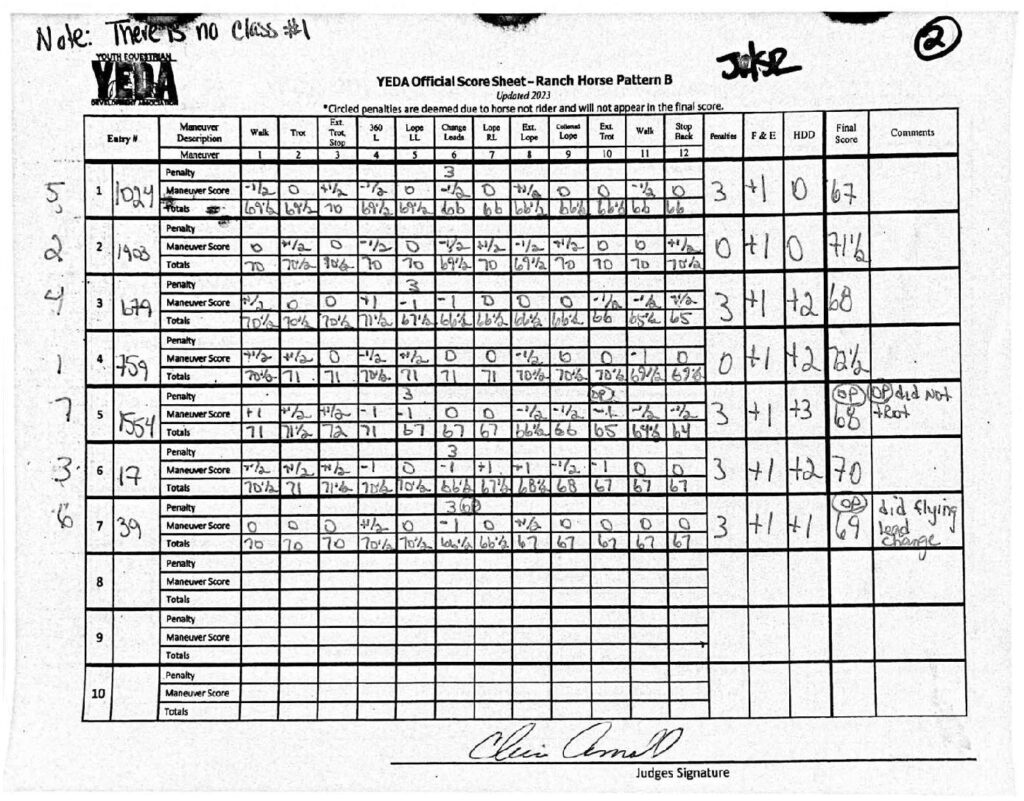 Note: There is no Class #1
2
YOUTH EQUESTRIAN
YEDA
DEVELOPMENT ASSOCIATION
YEDA Official Score Sheet – Ranch Horse Pattern B
Updated 2023
*Circled penalties are deemed due to horse not rider and will not appear in the final score.
Entry # Maneuver Description Walk Trot Ext. Trot, Stop 360 L Lope LL Change Leads Lope RL Ext. Lope Collected Lope Ext. Trot Walk Stop Back Penalties F & E HDD Final Score Comments
Maneuver 1 2 3 4 5 6 7 8 9 10 11 12
Penalty 3
5 1 1024 Maneuver Score -1/2 0 +1/2 -1/2 0 -1/2 0 +1/2 0 0 -1/2 0 3 +1 0 67
Totals 69½ 69½ 70 69½ 69½ 66 66 66½ 66½ 66½ 66 66
Penalty
2 2 1903 Maneuver Score 0 +1/2 0 -1/2 0 -1/2 +1/2 -1/2 +1/2 0 0 +1/2 0 +1 0 71½
Totals 70 70½ 70½ 70 70 69½ 70 69½ 70 70 70 70½
Penalty 3
4 3 679 Maneuver Score +1/2 0 0 +1 -1 -1 0 0 0 -1/2 -1/2 -1/2 3 +1 +2 68
Totals 70½ 70½ 70½ 71½ 67½ 66½ 66½ 66½ 66½ 66 65½ 65
Penalty
1 4 759 Maneuver Score +1/2 +1/2 0 -1/2 +1/2 0 0 -1/2 0 0 -1 0 0 +1 +2 72½
Totals 70½ 71 71 70½ 71 71 71 70½ 70½ 70½ 69½ 69½
Penalty 3 OP OP OP did not trot
7 5 1554 Maneuver Score +1 +1/2 +1/2 -1 -1 0 0 -1/2 -1/2 -1 -1/2 -1/2 3 +1 +3 68
Totals 71 71½ 72 71 67 67 67 66½ 66 65 64½ 64
Penalty 3
3 6 17 Maneuver Score +1/2 +1/2 +1/2 -1 0 -1 +1 +1 -1/2 -1 0 0 3 +1 +2 70
Totals 70½ 71 71½ 70½ 70½ 66½ 67½ 68½ 68 67 67 67
Penalty 3 OP OP did flying lead change
6 7 39 Maneuver Score 0 0 0 +1/2 0 -1 0 +1/2 0 0 0 0 3 +1 +1 69
Totals 70 70 70 70½ 70½ 66½ 66½ 67 67 67 67 67
Penalty
8 Maneuver Score
Totals
Penalty
9 Maneuver Score
Totals
Penalty
10 Maneuver Score
Totals
Judges Signature